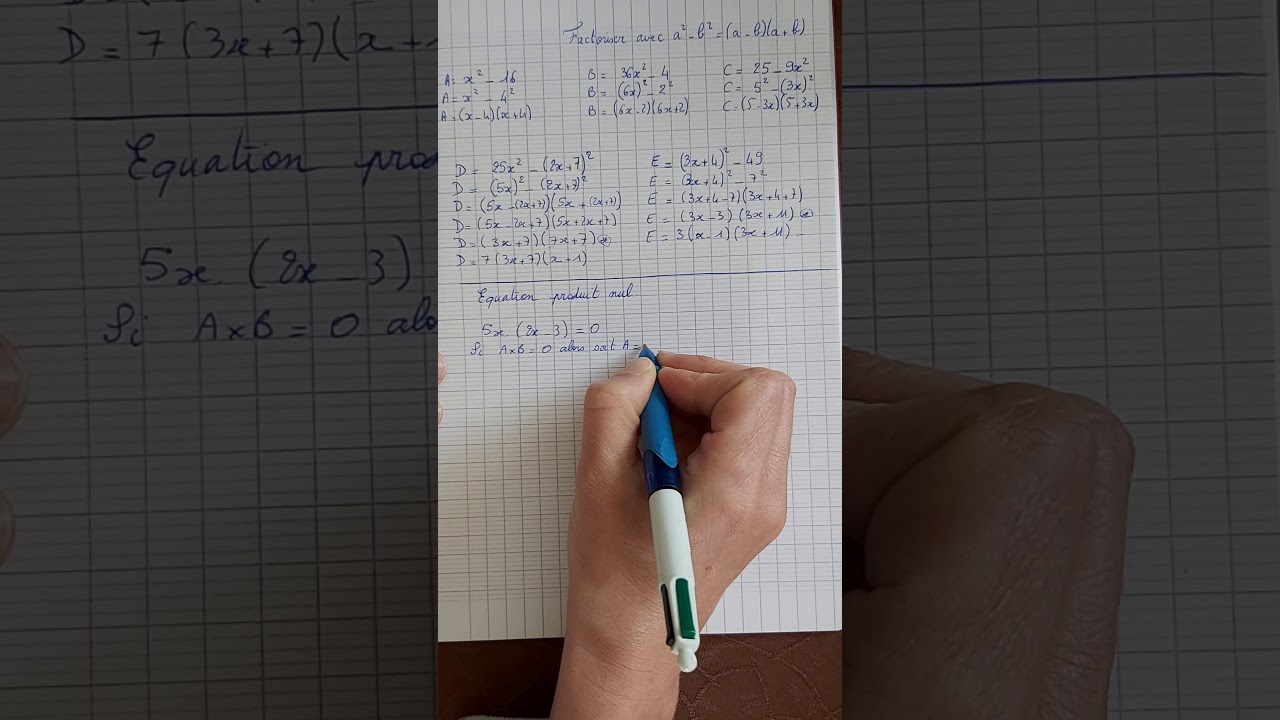 Factoriser avec a² - b² = (a - b)(a + b)
A = x² - 16
A = x² - 4²
A = (x - 4)(x + 4)
B = 36x² - 4
B = (6x)² - 2²
B = (6x - 2)(6x + 2)
C = 25 - 9x²
C = 5² - (3x)²
C = (5 - 3x)(5 + 3x)
D = 25x² - (2x + 7)²
D = (5x)² - (2x + 7)²
D = (5x - (2x + 7))(5x + (2x + 7))
D = (5x - 2x + 7)(5x + 2x + 7)
D = (3x + 7)(7x + 7)
D = 7(3x + 7)(x + 1)
E = (3x + 4)² - 49
E = (3x + 4)² - 7²
E = (3x + 4 - 7)(3x + 4 + 7)
E = (3x - 3)(3x + 11)
E = 3(x - 1)(3x + 11)
Equation produit nul.
5x . (2x - 3) = 0
Si A × B = 0 alors soit A =
D = 7(3x + 7)(x +
Equation prod
5x . (2x - 3)
Si A × B = 0 alo